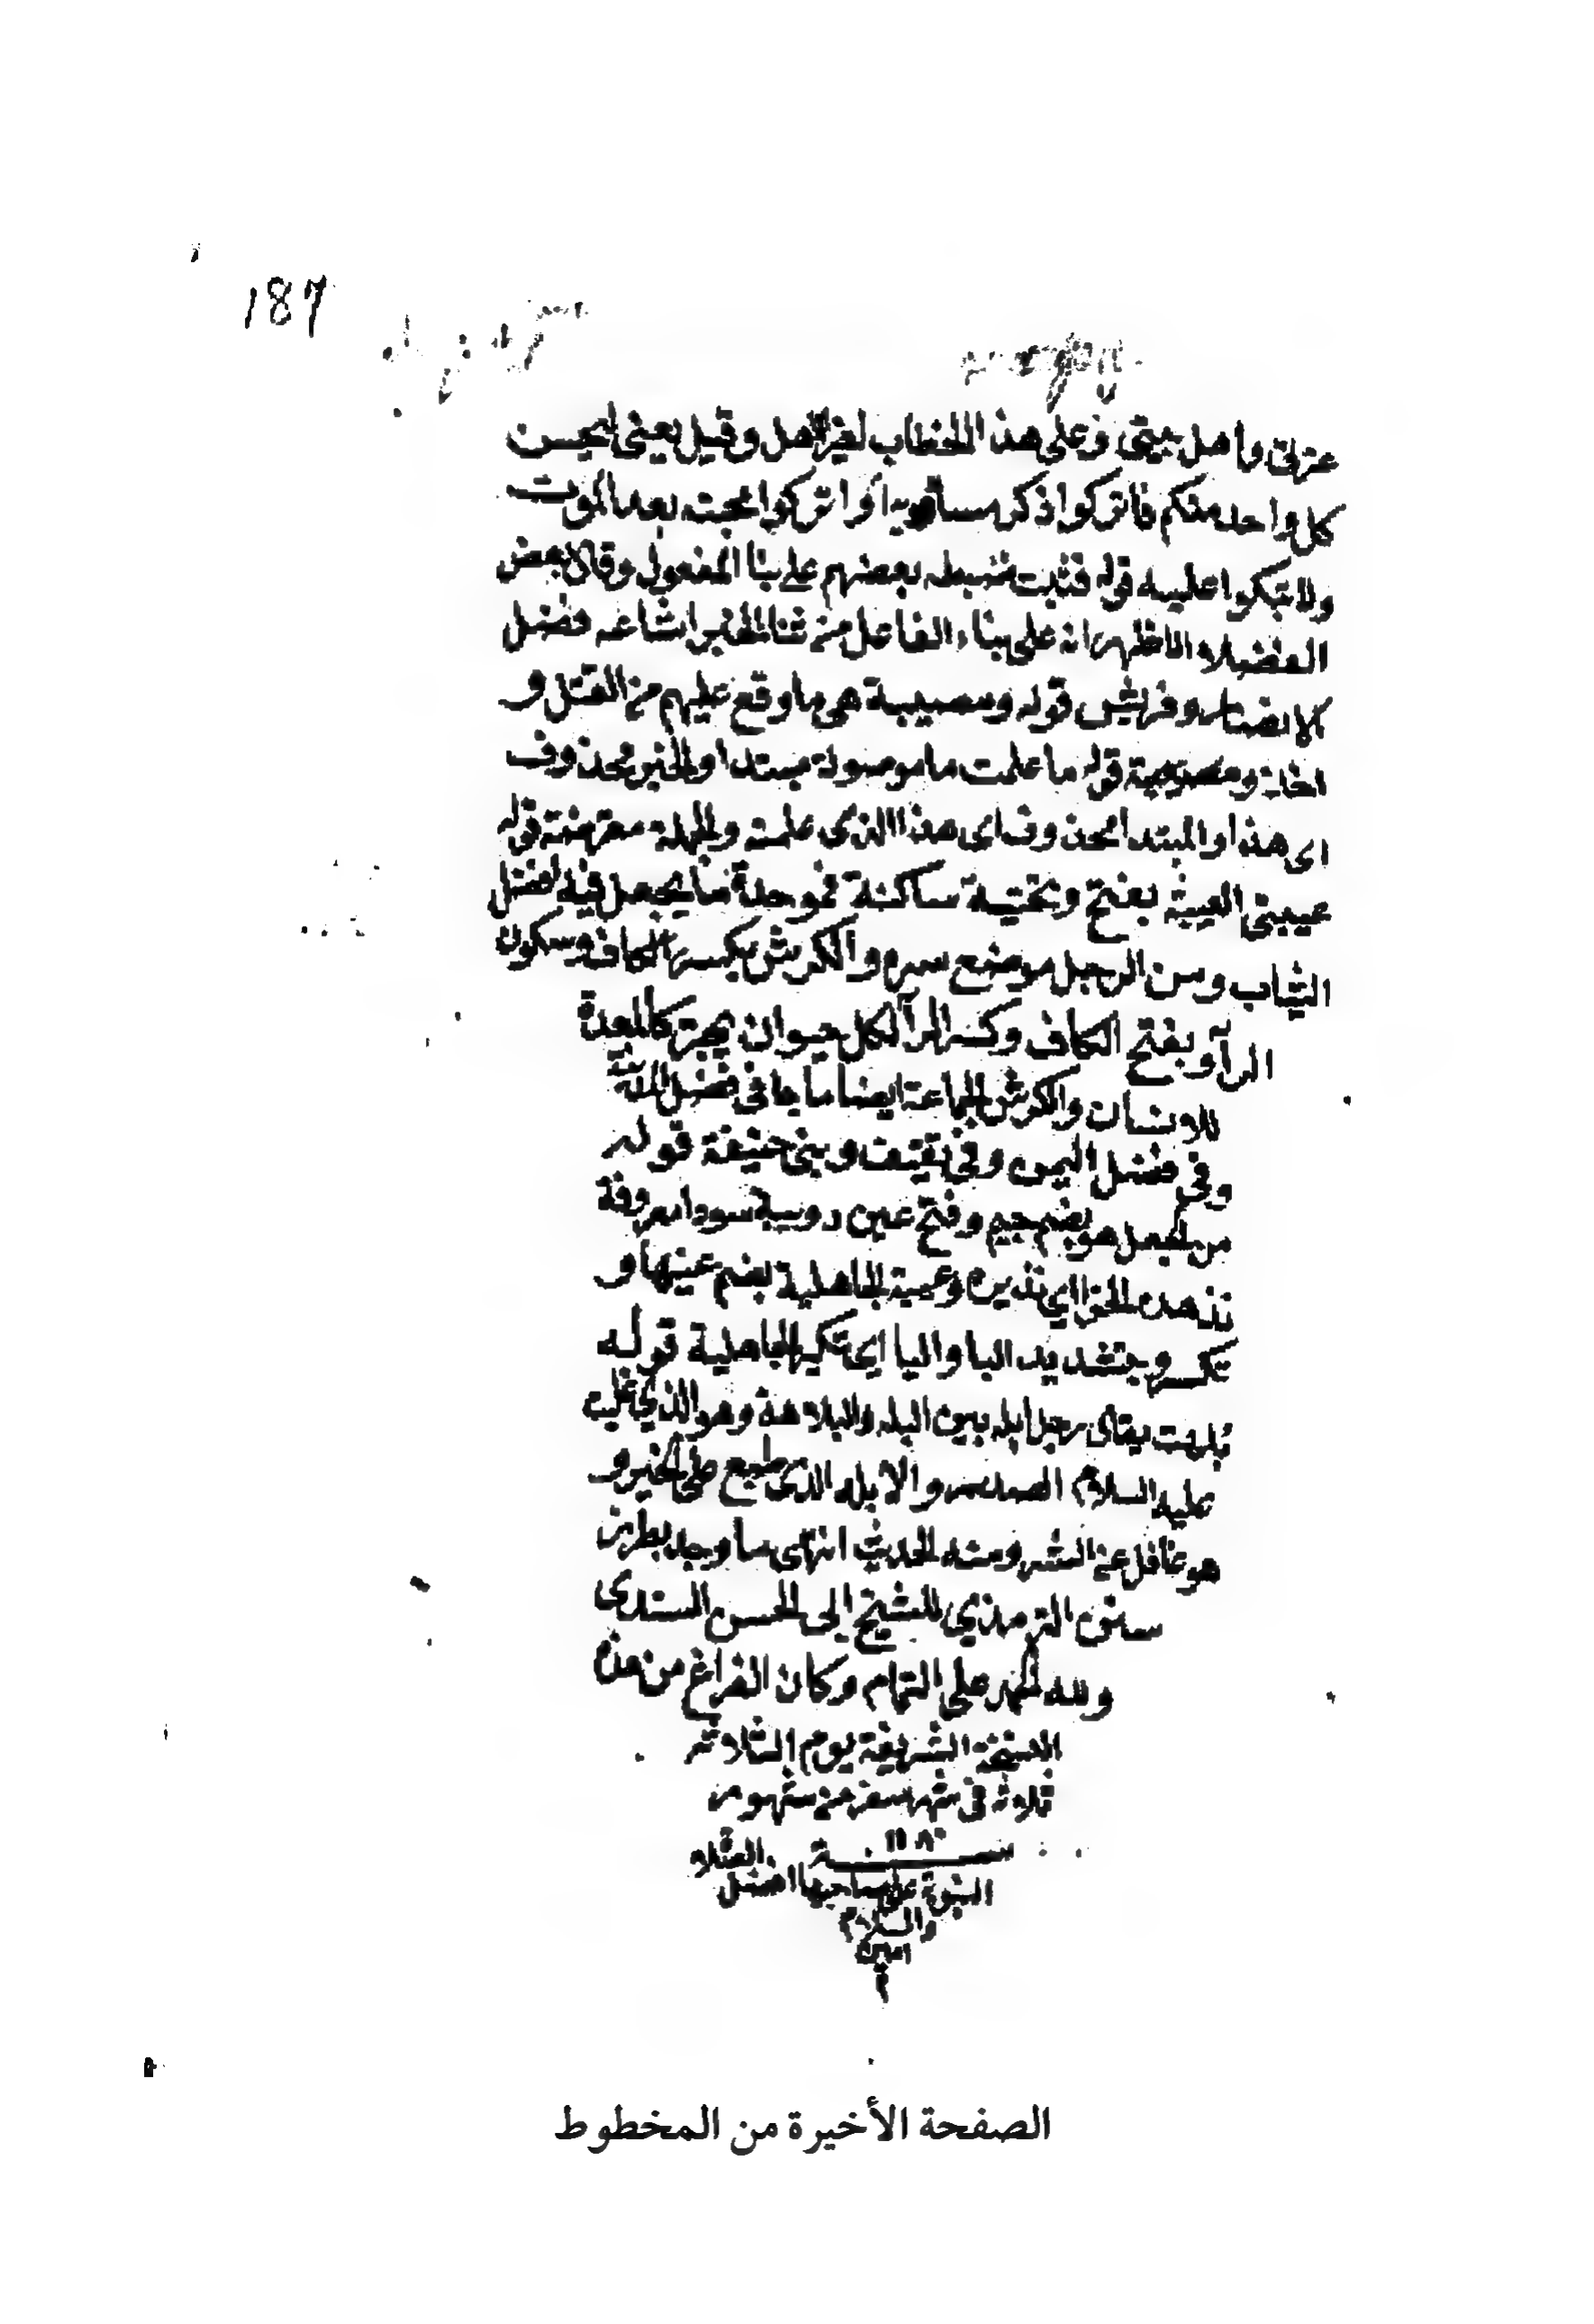 187
عزتى واهل بيتى وعلى هذا الخطاب لغير الاهل وقيل يعنى ليحسن
كل واحد منكم فاتركوا ذكر مساويه او اتركوا محبته بعد الموت
ولا تبكوا عليه قوله فثبت ضبطه بعضهم على بنا المفعول وقال بعض
الفضلاء الاظهر انه على بناء الفاعل من ثنا الخبر اشاعه فضل
الانصار وقريش قوله ومصيبة هى ما وقع عليهم من القتل و
قوله ما علمت ما موصولة مبتدا والخبر محذوف
اى هذا او المبتدا محذوف اى هذا الذى علمته والجملة معترضة قوله
عيبتى العيبة بفتح وتحتية ساكنة فموحدة ما يجعل فيه افضل
الثياب ومن الرجل موضع سره والكرش بكسر الكاف وسكون
الرآ وبفتح الكاف وكسر الرآ لكل حيوان يجتر كالمعدة
للانسان والكرش الجماعة ايضا ما جا فى فضل المدينة
وفى فضل اليمن وفى ثقيف وبنى حنيفة قوله
من الجعل هو بضم جيم وفتح عين دويبة سودا معروفة
تدهده الخرا اي تديره وعبية الجاهلية بضم عينها و
تكسر وبتشديد البا واليا اى تكبر الجاهلية قوله
بلهت يقال رجل ابله بين البله والبلاهة وهو الذي غلبت
عليه السلام الصدر والابله الذى طبع على الخير و
هو غافل عن الشر ومنه الحديث انتهى ما وجد بطرز
سنن الترمذي للشيخ ابى الحسن السندى
ولله الحمد على التمام وكان الفراغ من هذه
النسخة الشريفة يوم الثلاثه
ثلاثة فى شهر سفر من شهور
سنة ١١٨٠
النبوة على صاحبها افضل الصلاه
والسلام
امين
م
الصفحة الأخيرة من المخطوط